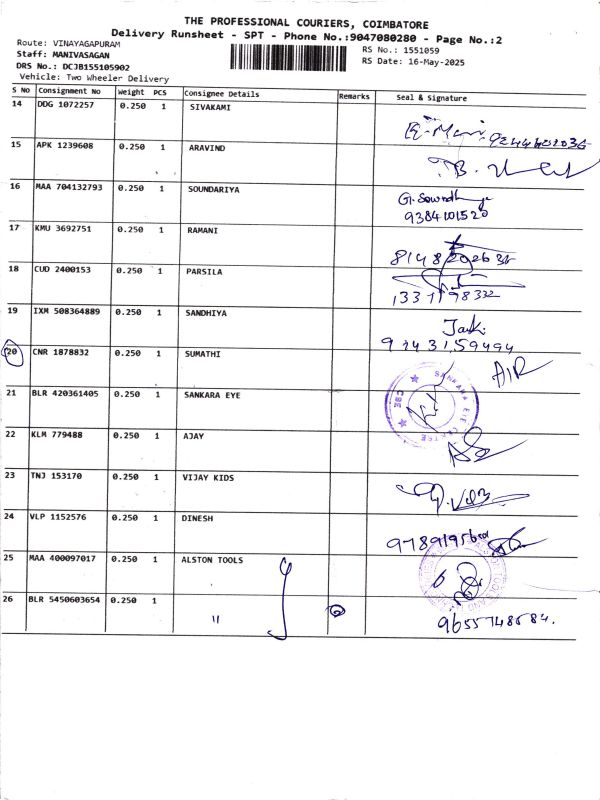 THE PROFESSIONAL COURIERS, COIMBATORE
Delivery Runsheet - SPT - Phone No.:9047080280 - Page No.:2
Route: VINAYAGAPURAM
Staff: MANIVASAGAN
DRS No.: DCJB1551059O2
Vehicle: Two Wheeler Delivery
RS No.: 1551059
RS Date: 16-May-2025
S No Consignment No Weight PCS Consignee Details Remarks Seal & Signature
14 DDG 1072257 0.250 1 SIVAKAMI
15 APK 1239608 0.250 1 ARAVIND
16 MAA 704132793 0.250 1 SOUNDARIYA
9384101520
17 KMU 3692751 0.250 1 RAMANI
18 CUD 2400153 0.250 1 PARSILA
19 IXM 508364889 0.250 1 SANDHIYA
20 CNR 1878832 0.250 1 SUMATHI
AIR
21 BLR 420361405 0.250 1 SANKARA EYE
SANKARA EYE CENTRE CBE
22 KLM 779488 0.250 1 AJAY
23 TNJ 153170 0.250 1 VIJAY KIDS
24 VLP 1152576 0.250 1 DINESH
25 MAA 400097017 0.250 1 ALSTON TOOLS
26 BLR 5450603654 0.250 1 "